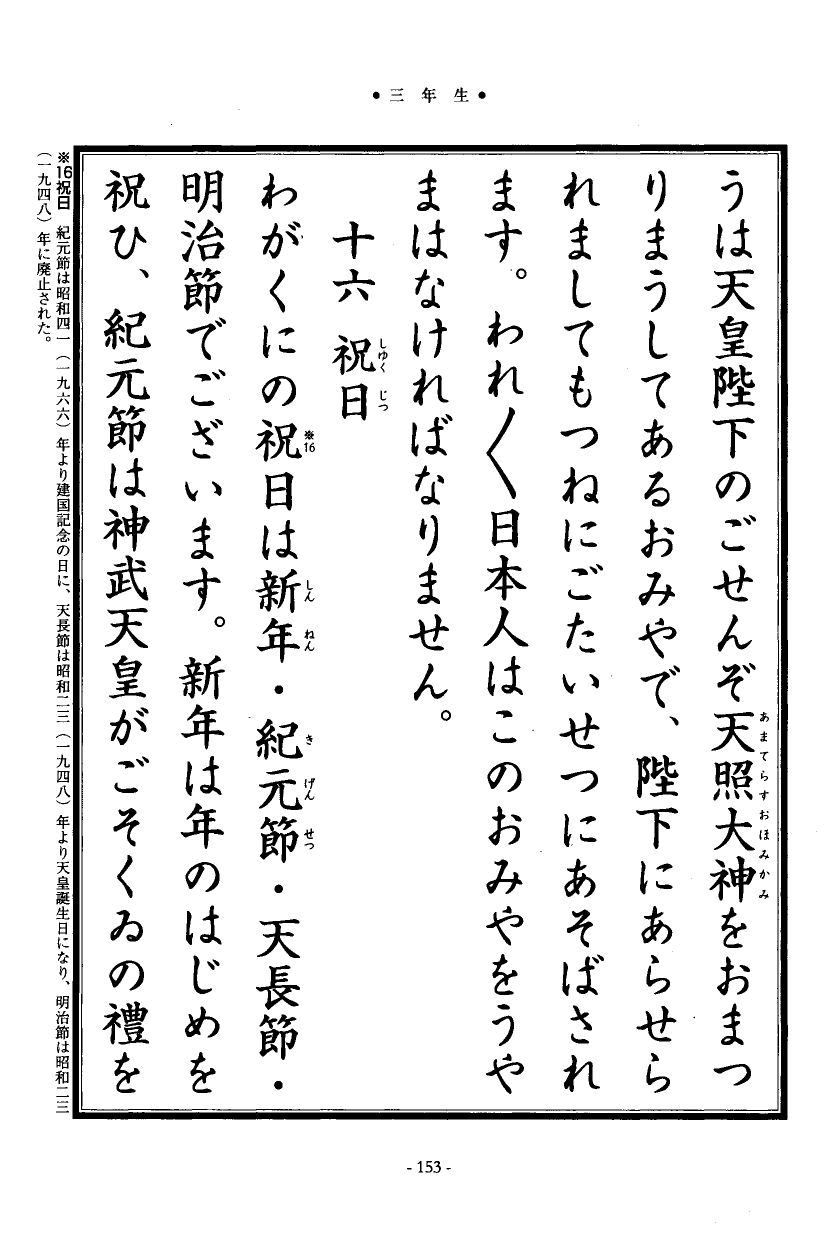 •三年生•
うは天皇陛下のごせんぞ天照大神をおまつ
あまてらすおほみかみ
りまうしてあるおみやで、陛下にあらせら
れましてもつねにごたいせつにあそばされ
ます。われ〱日本人はこのおみやをうや
まはなければなりません。
十六 祝日
しゆくじつ
わがくにの祝日は新年・紀元節・天長節・
※16 しんねん きげんせつ
明治節でございます。新年は年のはじめを
祝ひ、紀元節は神武天皇がごそくゐの禮を
※16祝日 紀元節は昭和四一(一九六六)年より建国記念の日に、天長節は昭和二三(一九四八)年より天皇誕生日になり、明治節は昭和二三
(一九四八)年に廃止された。
- 153 -